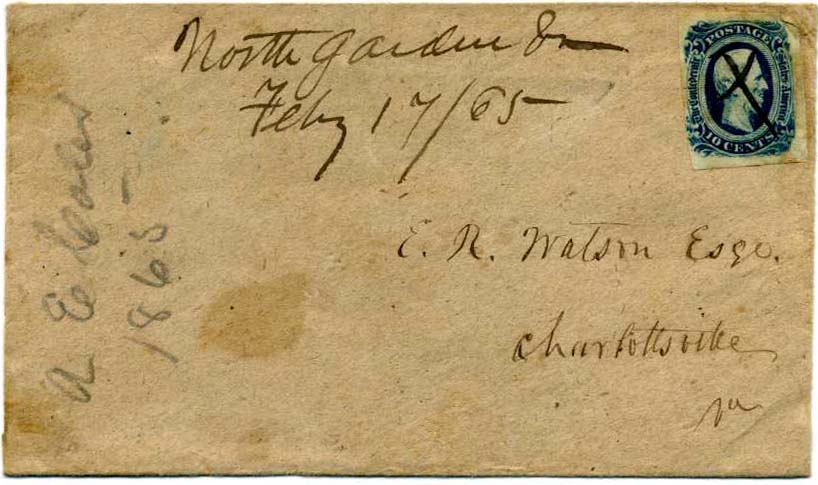 North Garden Va
Feby 17/65
POSTAGE
The Confederate States of America
10 CENTS
E. R. Watson Esqr.
Charlottsville
Va
A
1865